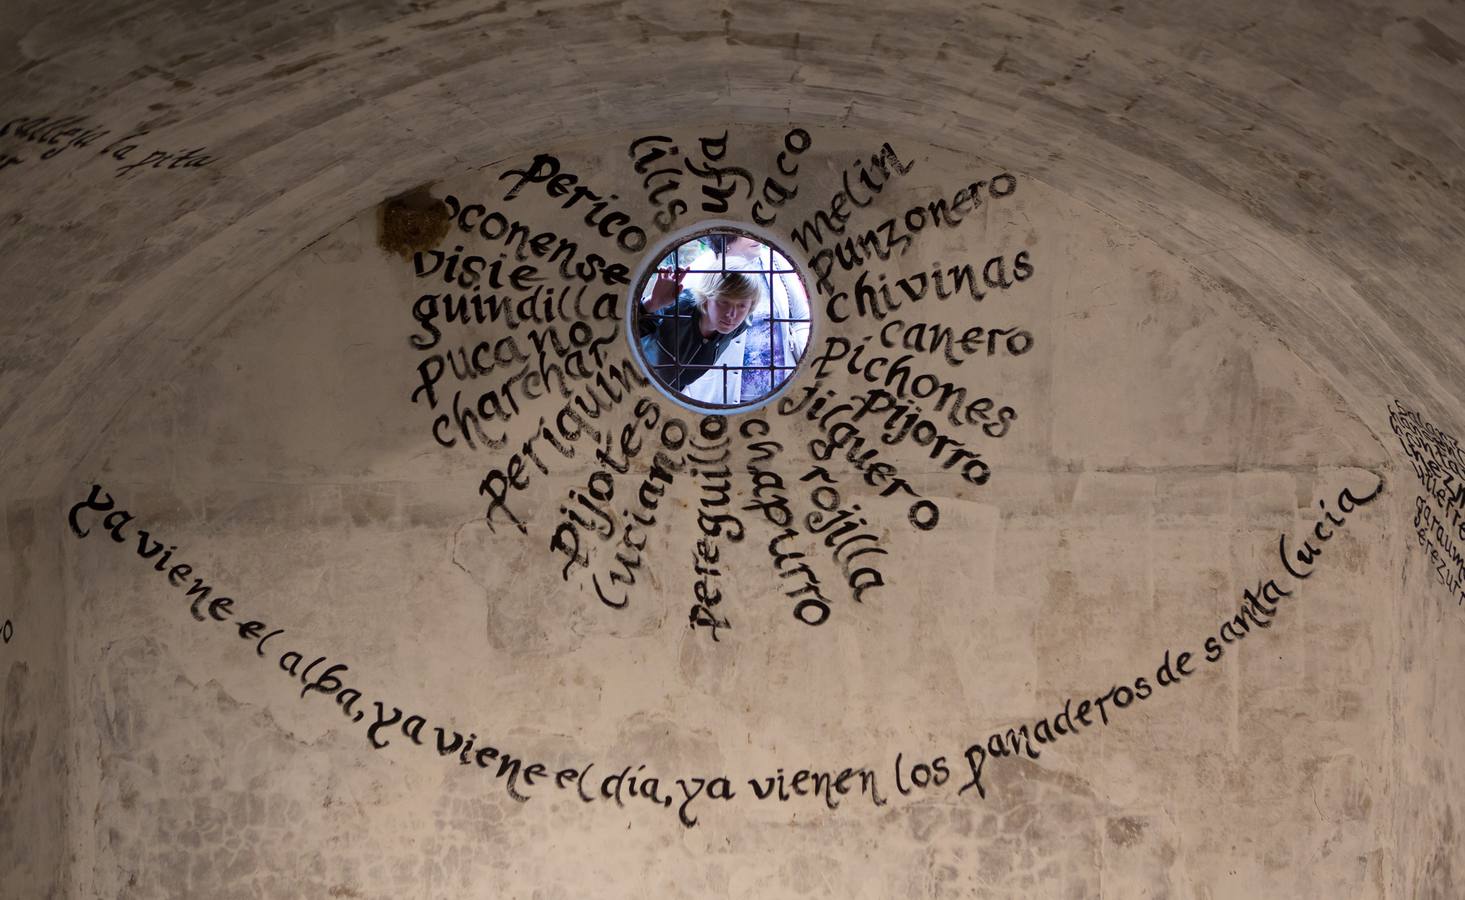 calleja la pita
perico
lilis
ufa
caco
melin
punzonero
chivinas
canero
pichones
pijorro
jilguero
rojilla
chapurro
pereguillo
luciano
pijotes
periquin
charchar
pucano
guindilla
visie
oconense
ya viene el alba, ya viene el día, ya vienen los panaderos de santa lucia